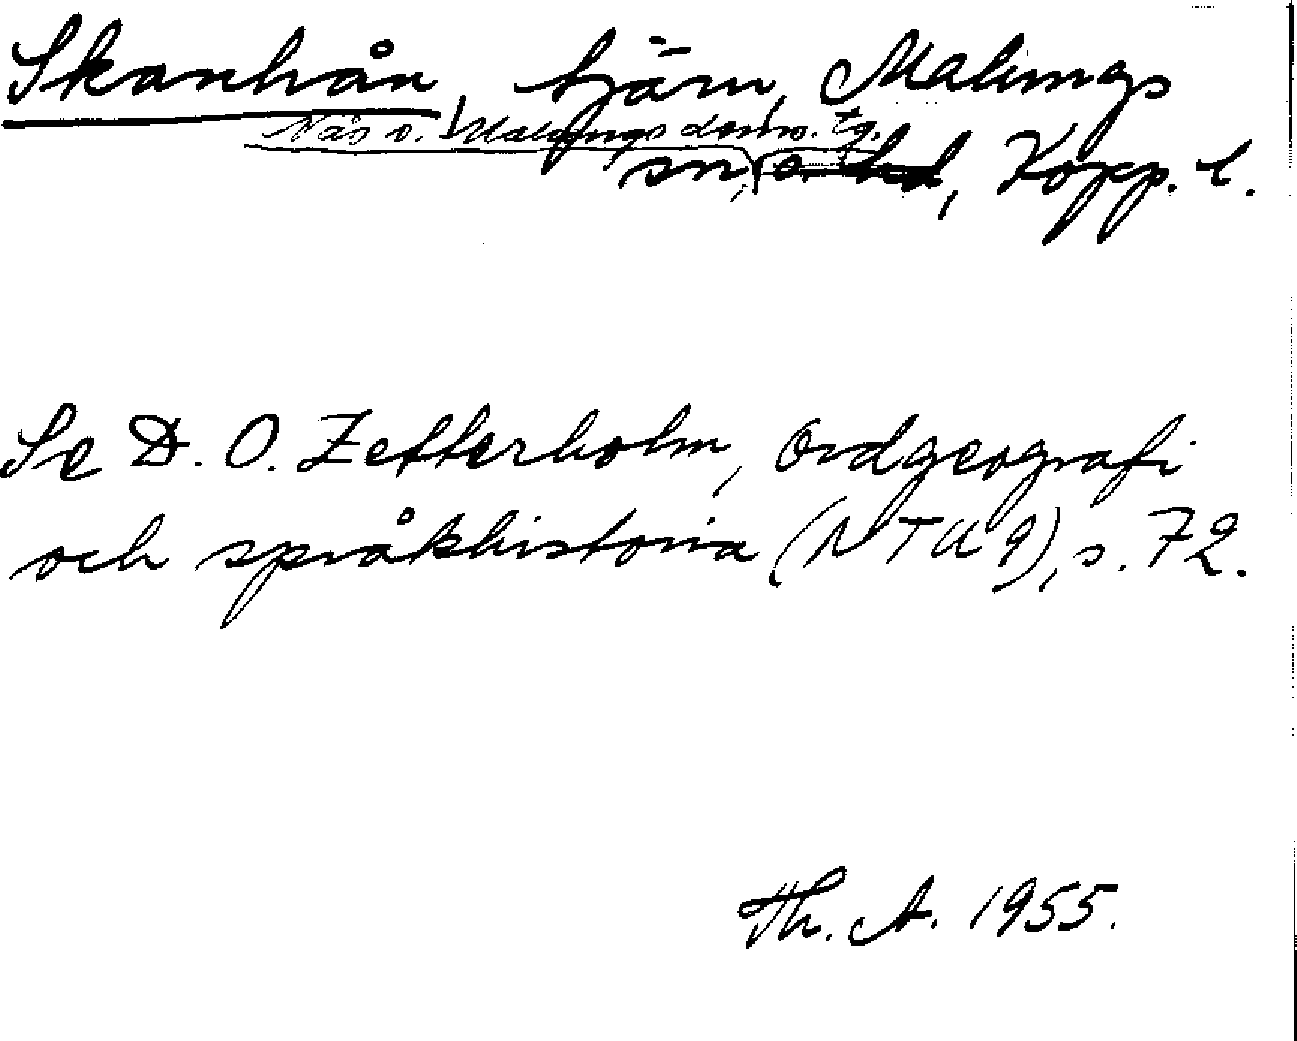 Skanhån, tjärn, Malungs
Nås o. Malungs doms. tg.
sn, o. hd, Kopp. l.
Se D. O. Zetterholm, Ordgeografi
och språkhistoria (NTU 9), s. 72.
Th. A. 1955.